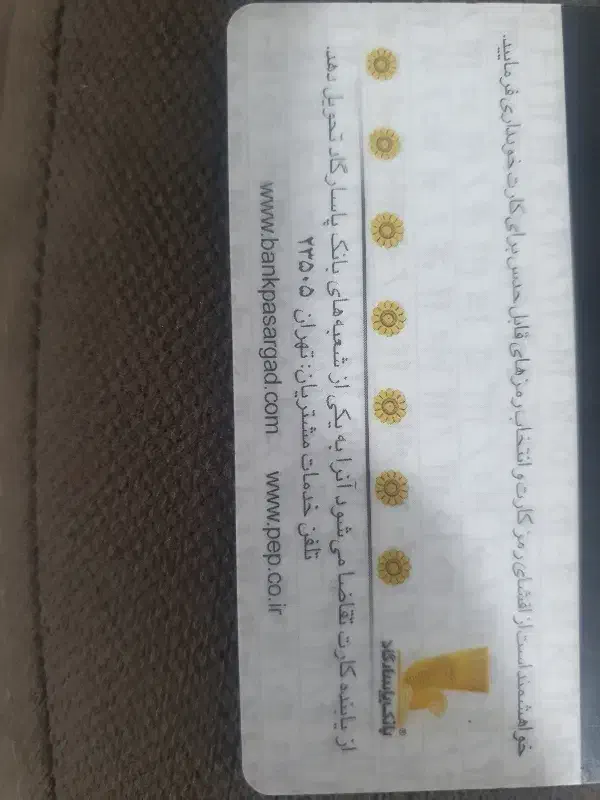 خواهشمند است از افشای رمز کارت و انتخاب رمزهای قابل حدس برای کارت خودداری فرمایید.
بانک پاسارگاد
®
از یابنده کارت تقاضا می شود آنرا به یکی از شعبه های بانک پاسارگاد تحویل دهد.
تلفن خدمات مشتریان: تهران ۲۳۵۰۵
www.bankpasargad.com www.pep.co.ir